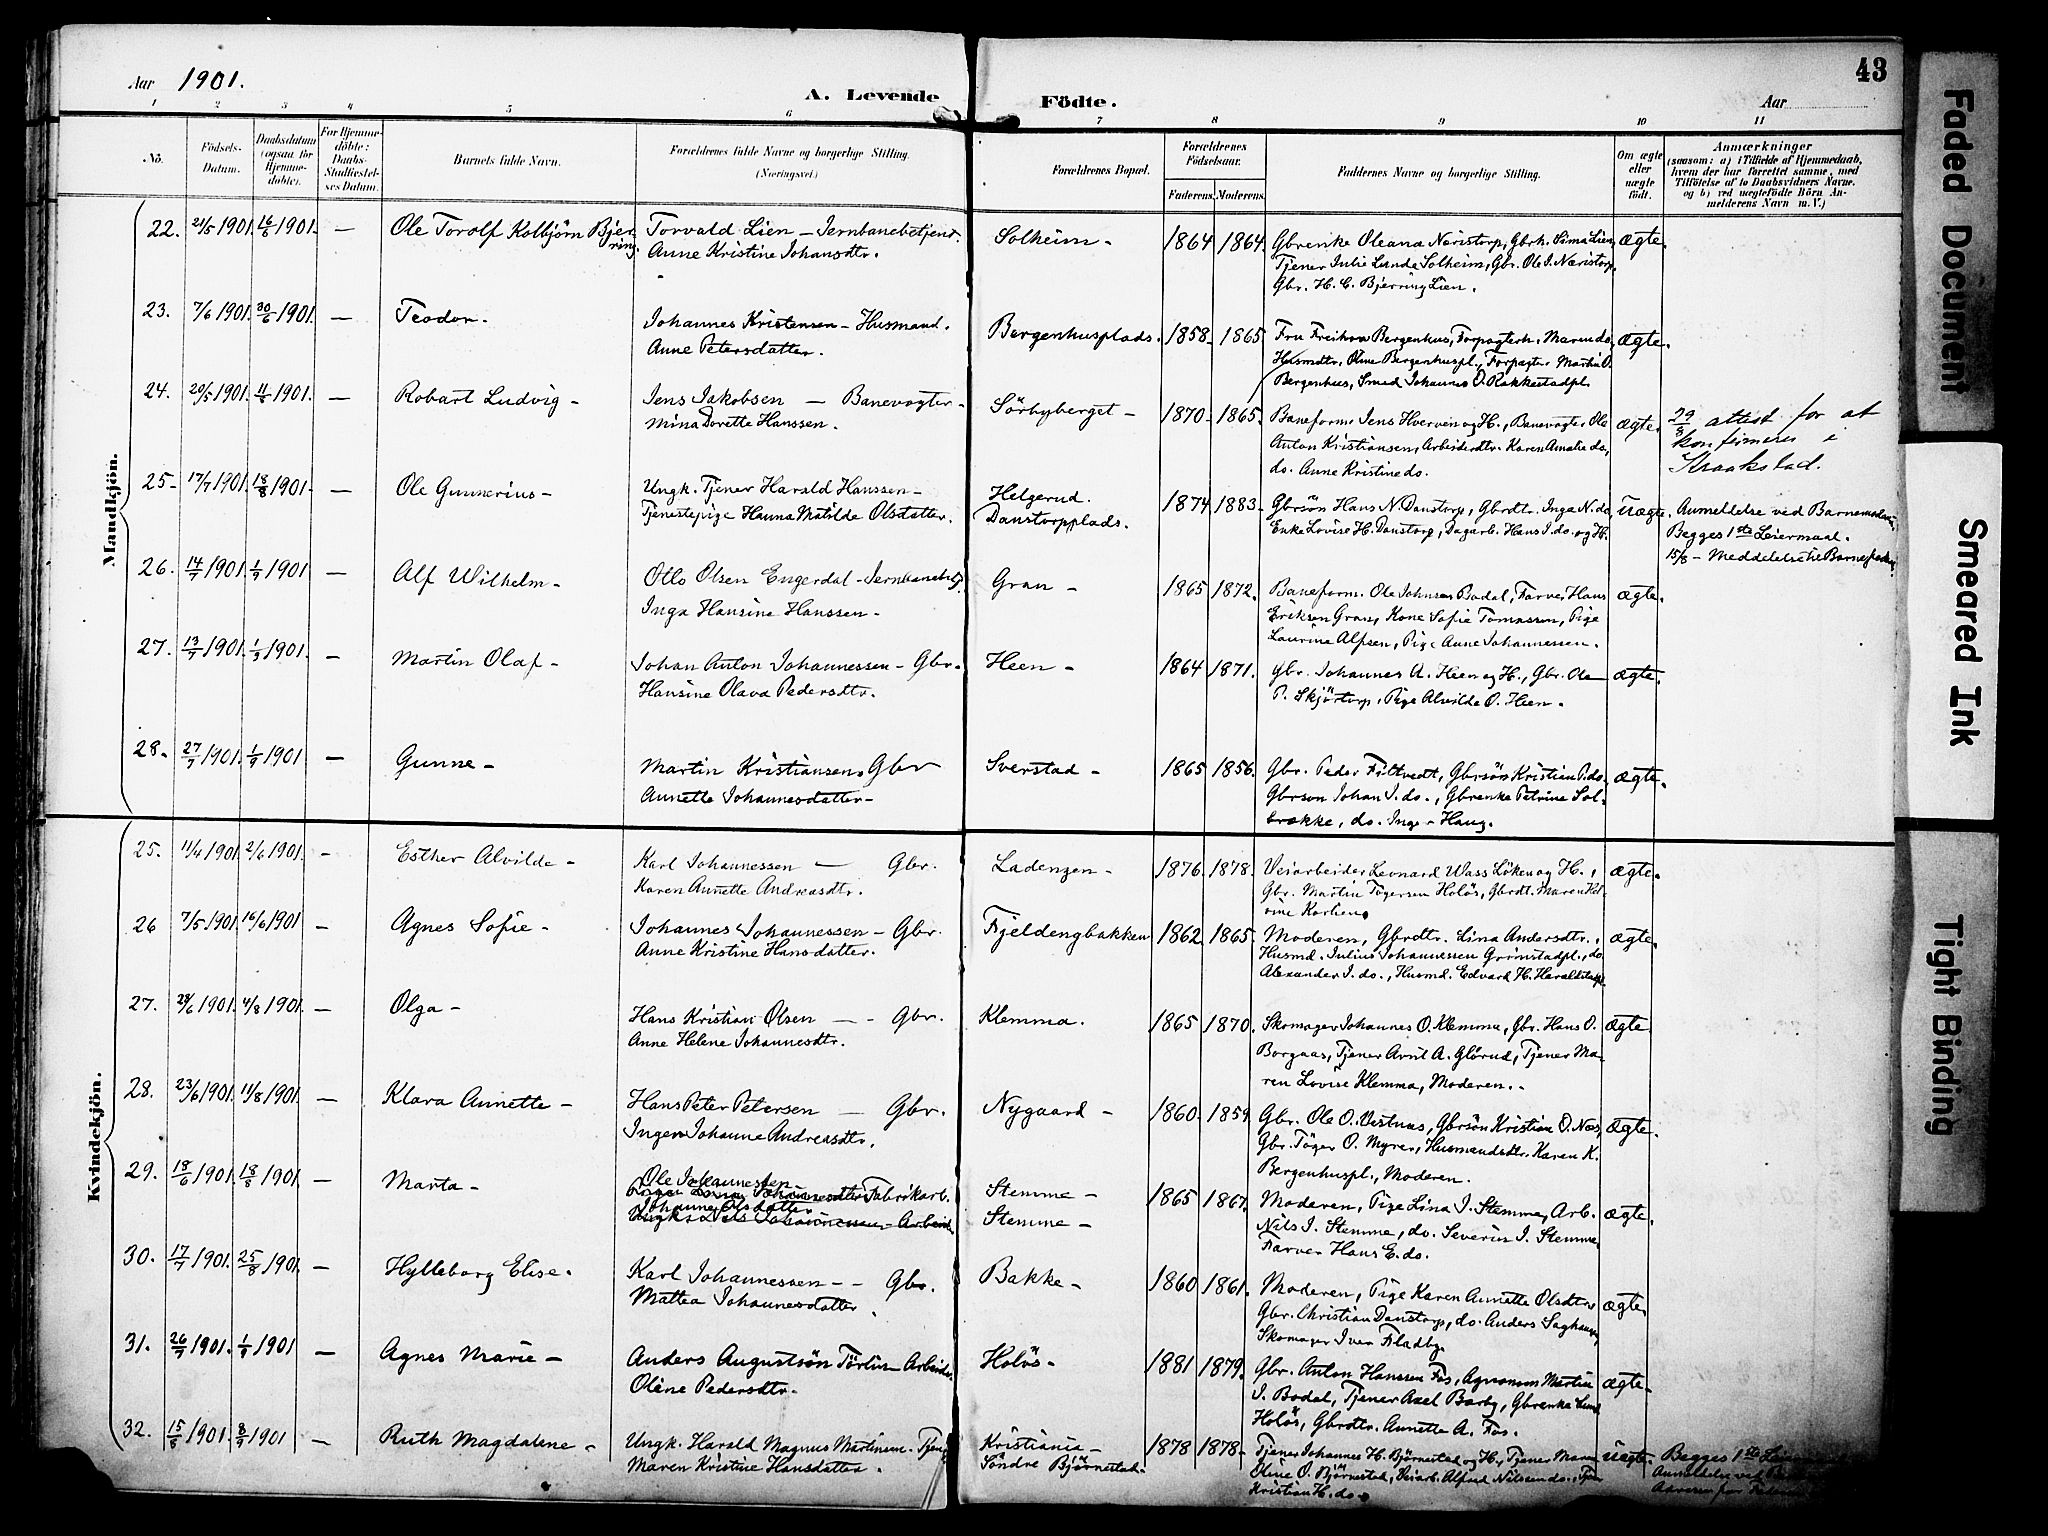 Aar 1901.
A. Levende
Födte.
Aar
43
1 2 3 4 5 6 7 8 9 10 11
No.
Födsels-Datum.
Daabsdatum (ogsaa for Hjemme-döbte).
For Hjemme-döbte: Daabs-Stadfæstel-ses Datum.
Barnets fulde Navn.
Forældrenes fulde Navne og borgerlige Stilling. (Næringsvei.)
Forældrenes Bopæl.
Forældrenes Födselsaar.
Faderens. Moderens.
Faddernes Navne og borgerlige Stilling.
Om ægte eller uægte födt.
Anmærkninger
(saasom: a) i Tilfælde af Hjemmedaab,
hvem der har forrettet samme, med
Tilföielse af to Daabsvidners Navne.
og b) ved uægtefödte Börn An-
melderens Navn m. V.)
Mandkjön.
22. 21/5 1901. 16/6 1901. — Ole Torolf Kolbjörn Bjer- Torvald Lien — Jernbanebetjent. Solheim - 1864 1864. Gbrenke Oleana Næristorp, Gbrk. Sima Lien, ægte.
ring. Anne Kristine Johansdtr. Tjener Julie Lunde Solheim, Gbr. Ole I. Næristorp,
Gbr. H. C. Bjerring Lien.
23. 7/6 1901. 30/6 1901. — Teodor. Johannes Kristensen - Husmand. Bergenhusplads. 1858 - 1865 Fru Bergenhus, Forpagterk. Maren do, ægte.
Anne Petersdatter. Husmdtr. Oline Bergenhuspl., Forpagter Martin O.
Bergenhus, Smed Johannes O. Rakkestadpl.
24. 20/5 1901. 16/6 1901. — Robart Ludvig - Jens Jakobsen — Banevogter - Sörbyberget - 1870 - 1865. Baneform. Jens Hverven og H., Banevogter Ole ægte. 29/8 attest for at
Mina Dorette Hanssen. Anton Kristiansen, Arbeiderdtr. Karen Amalie do, konfirmeres i
do. Anne Kristine do. Kraakstad.
25 - 17/7 1901. 18/8 1901. — Ole Gunnerius - Ungk. Tjener Harald Hanssen - Helgerud. 1874 1883. Gbrsön Hans N. Danstorp, Gbrdtr. Inga N. do, uægte. Anmeldelse ved Barnemoderen,
Tjenestepige Hanna Matilde Olsdatter. Danstorpplads. Enke Lovise H. Danstorp, Dagarb. Hans I. do. og H. Begges 1ste Leiermaal.
15/8 - Meddelelse til Barnefader.
26. 14/7 1901. 1/9 1901 — Alf Wilhelm - Otto Olsen Engerdal - Jernbanebetj. Gran - 1865 1872. Baneform. Ole Johnsen Bodal, Farver Hans ægte.
Inga Hansine Hanssen - Eriksen Gran, Kone Sofie Tomassen, Pige
Laurine Alfsen, Pige Anne Johannessen.
27. 13/7 1901. 1/9 1901. — Martin Olaf - Johan Anton Johannessen - Gbr. Heen - 1864 1871. Gbr. Johannes A. Heen og H., Gbr. Ole ægte.
Hansine Olava Pedersdtr. P. Skjörtorp, Pige Alvilde O. Heen.
28. 27/7 1901. 1/9 1901 — Gunne - Martin Kristiansen, Gbr Sverstad - 1865 1856. Gbr. Peder Filtvedt, Gbrsön Kristian P. do. ægte.
Annette Johannesdatter - Gbrson Johan I. do., Gbrenke Petrine Sol-
brække, do. Inger Haug.
Kvindekjön.
25. 11/4 1901. 2/6 1901. — Esther Alvilde - Karl Johannessen — Gbr. Ladenzen - 1876. 1878. Veiarbeider Leonard Wass Löken og H., ægte.
Karen Annette Andreasdtr. Gbr. Martin Tögersen Holös, Gbrdt. Maren
26 7/5 1901. 16/6 1901 — Agnes Sofie - Johannes Johannessen - Gbr. Fjeldengbakken 1862 1865. Moderen, Gbrdtr. Lina Andersdtr., ægte.
Anne Kristine Hansdatter. Husmd. Julius Johannessen Grimstadpl., do.
Alexander I. do., Husmd. Edvard H.
27. 28/6 1901. 4/8 1901. — Olga - Hans Kristian Olsen — Gbr. Klemma. 1865 1870. Skomager Johannes O. Klemma, Gbr. Hans O. ægte.
Anne Helene Johannesdtr. Borgaas, Tjener Arnt A. Glörud, Tjener Ma-
ren Lovise Klemma, Moderen.
28. 23/6 1901. 11/8 1901. — Klara Annette - Hans Peter Petersen — Gbr. Nygaard - 1860. 1859. Gbr. Ole O. Vestnæs, Gbrsön Kristian O. Næs, ægte.
Inger Johanne Andreasdtr. Gbr. Töger O. Myrer, Husmandsdtr. Karen K.
Bergenhuspl., Moderen.
29. 18/6 1901. 18/8 1901. — Marta - Ole Johannessen Fabrikarb. Stemme - 1865 1867. Moderen, Pige Lina I. Stemme, Arb. ægte.
Johanne Olsdatter Stemme - Nils I. Stemme, do. Severin I. Stemme,
Ungk. Nels Johannessen - Arbeid. Farver Hans E. do.
30. 17/7 1901. 25/8 1901. — Hylleborg Elise. Karl Johannessen - - Gbr. Bakke - 1860 1861. Moderen, Pige Karen Annette Olsdtr, ægte.
Mattea Johannesdatter. Gbr. Christian Danstorp, do. Anders Saghaug,
Skomager Iver Fladby.
31. 26/7 1901. 1/9 1901 — Agnes Marie - Anders Augustsön Törtin - Arbeider. Holös - 1881 1879. Gbr. Anton Hanssen Fos, Agronom Martin ægte -
Oline Pedersdtr. I. Bodal, Tjener Axel Barby, Gbrenke
Holös, Gbrdtr. Annette A. Fos.
32. 15/8 1901. 8/9 1901 — Ruth Magdalene - Ungk. Harald Magnus Martinsen - Tjen. Kristiania - 1878 1878 - Tjener Johannes H. Bjørnestad og H., Tjener Maren uægte. Begges 1ste
Maren Kristine Hansdatter. Söndre Bjørnestad. Oline O. Bjørnestad, Veiarb. Alfred Nilsen do., Tjener Anmeldelse ved
Kristian H. do.
Faded Document
Smeared Ink
Tight Binding